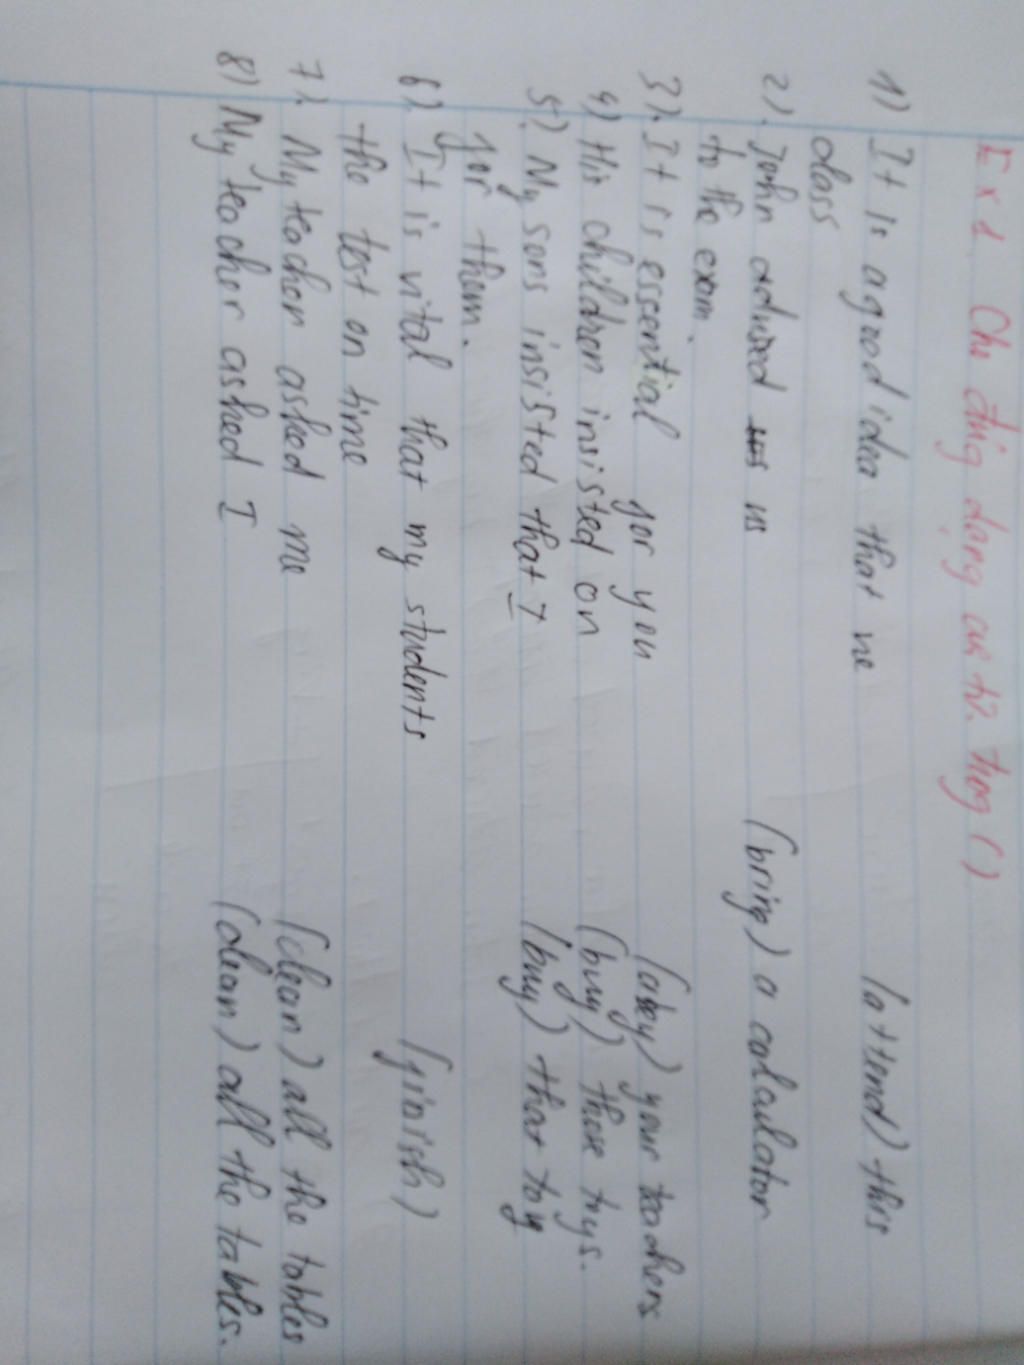 Ex 1. Cho đúng dạng của từ trong ( )
1) It is a good idea that we (attend) this
class
2) John advised us (bring) a calculator
to the exam.
3) It is essential for you (obey) your teachers
4) His children insisted on (buy) those toys.
5) My sons insisted that I (buy) that toy
for them.
6) It is vital that my students (finish)
the test on time
7) My teacher asked me (clean) all the tables
8) My teacher asked I (clean) all the tables.